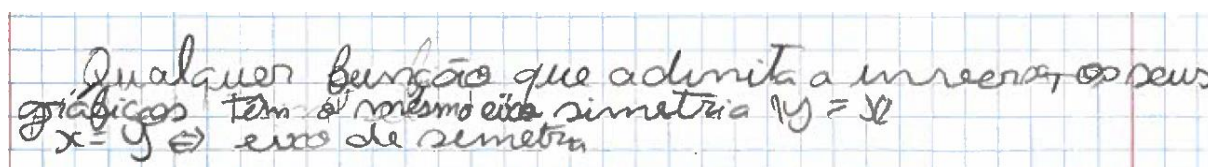 Qualquer função que admita a inversa, os seus
gráficos têm o mesmo eixo simetria y = x
x = y ⇔ eixo de simetria